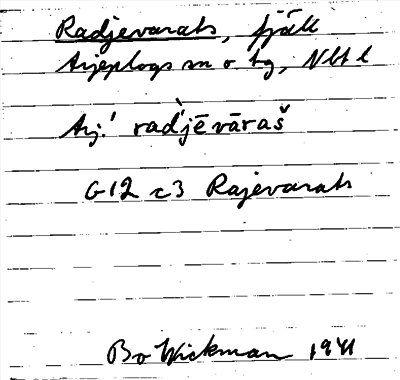 Radjevarats, fjäll
Arjeplogs sn o tg, Nbt l
Arj.! rad̀jēvāraš
G12 c3 Rajevarats
Bo Wickman 1941